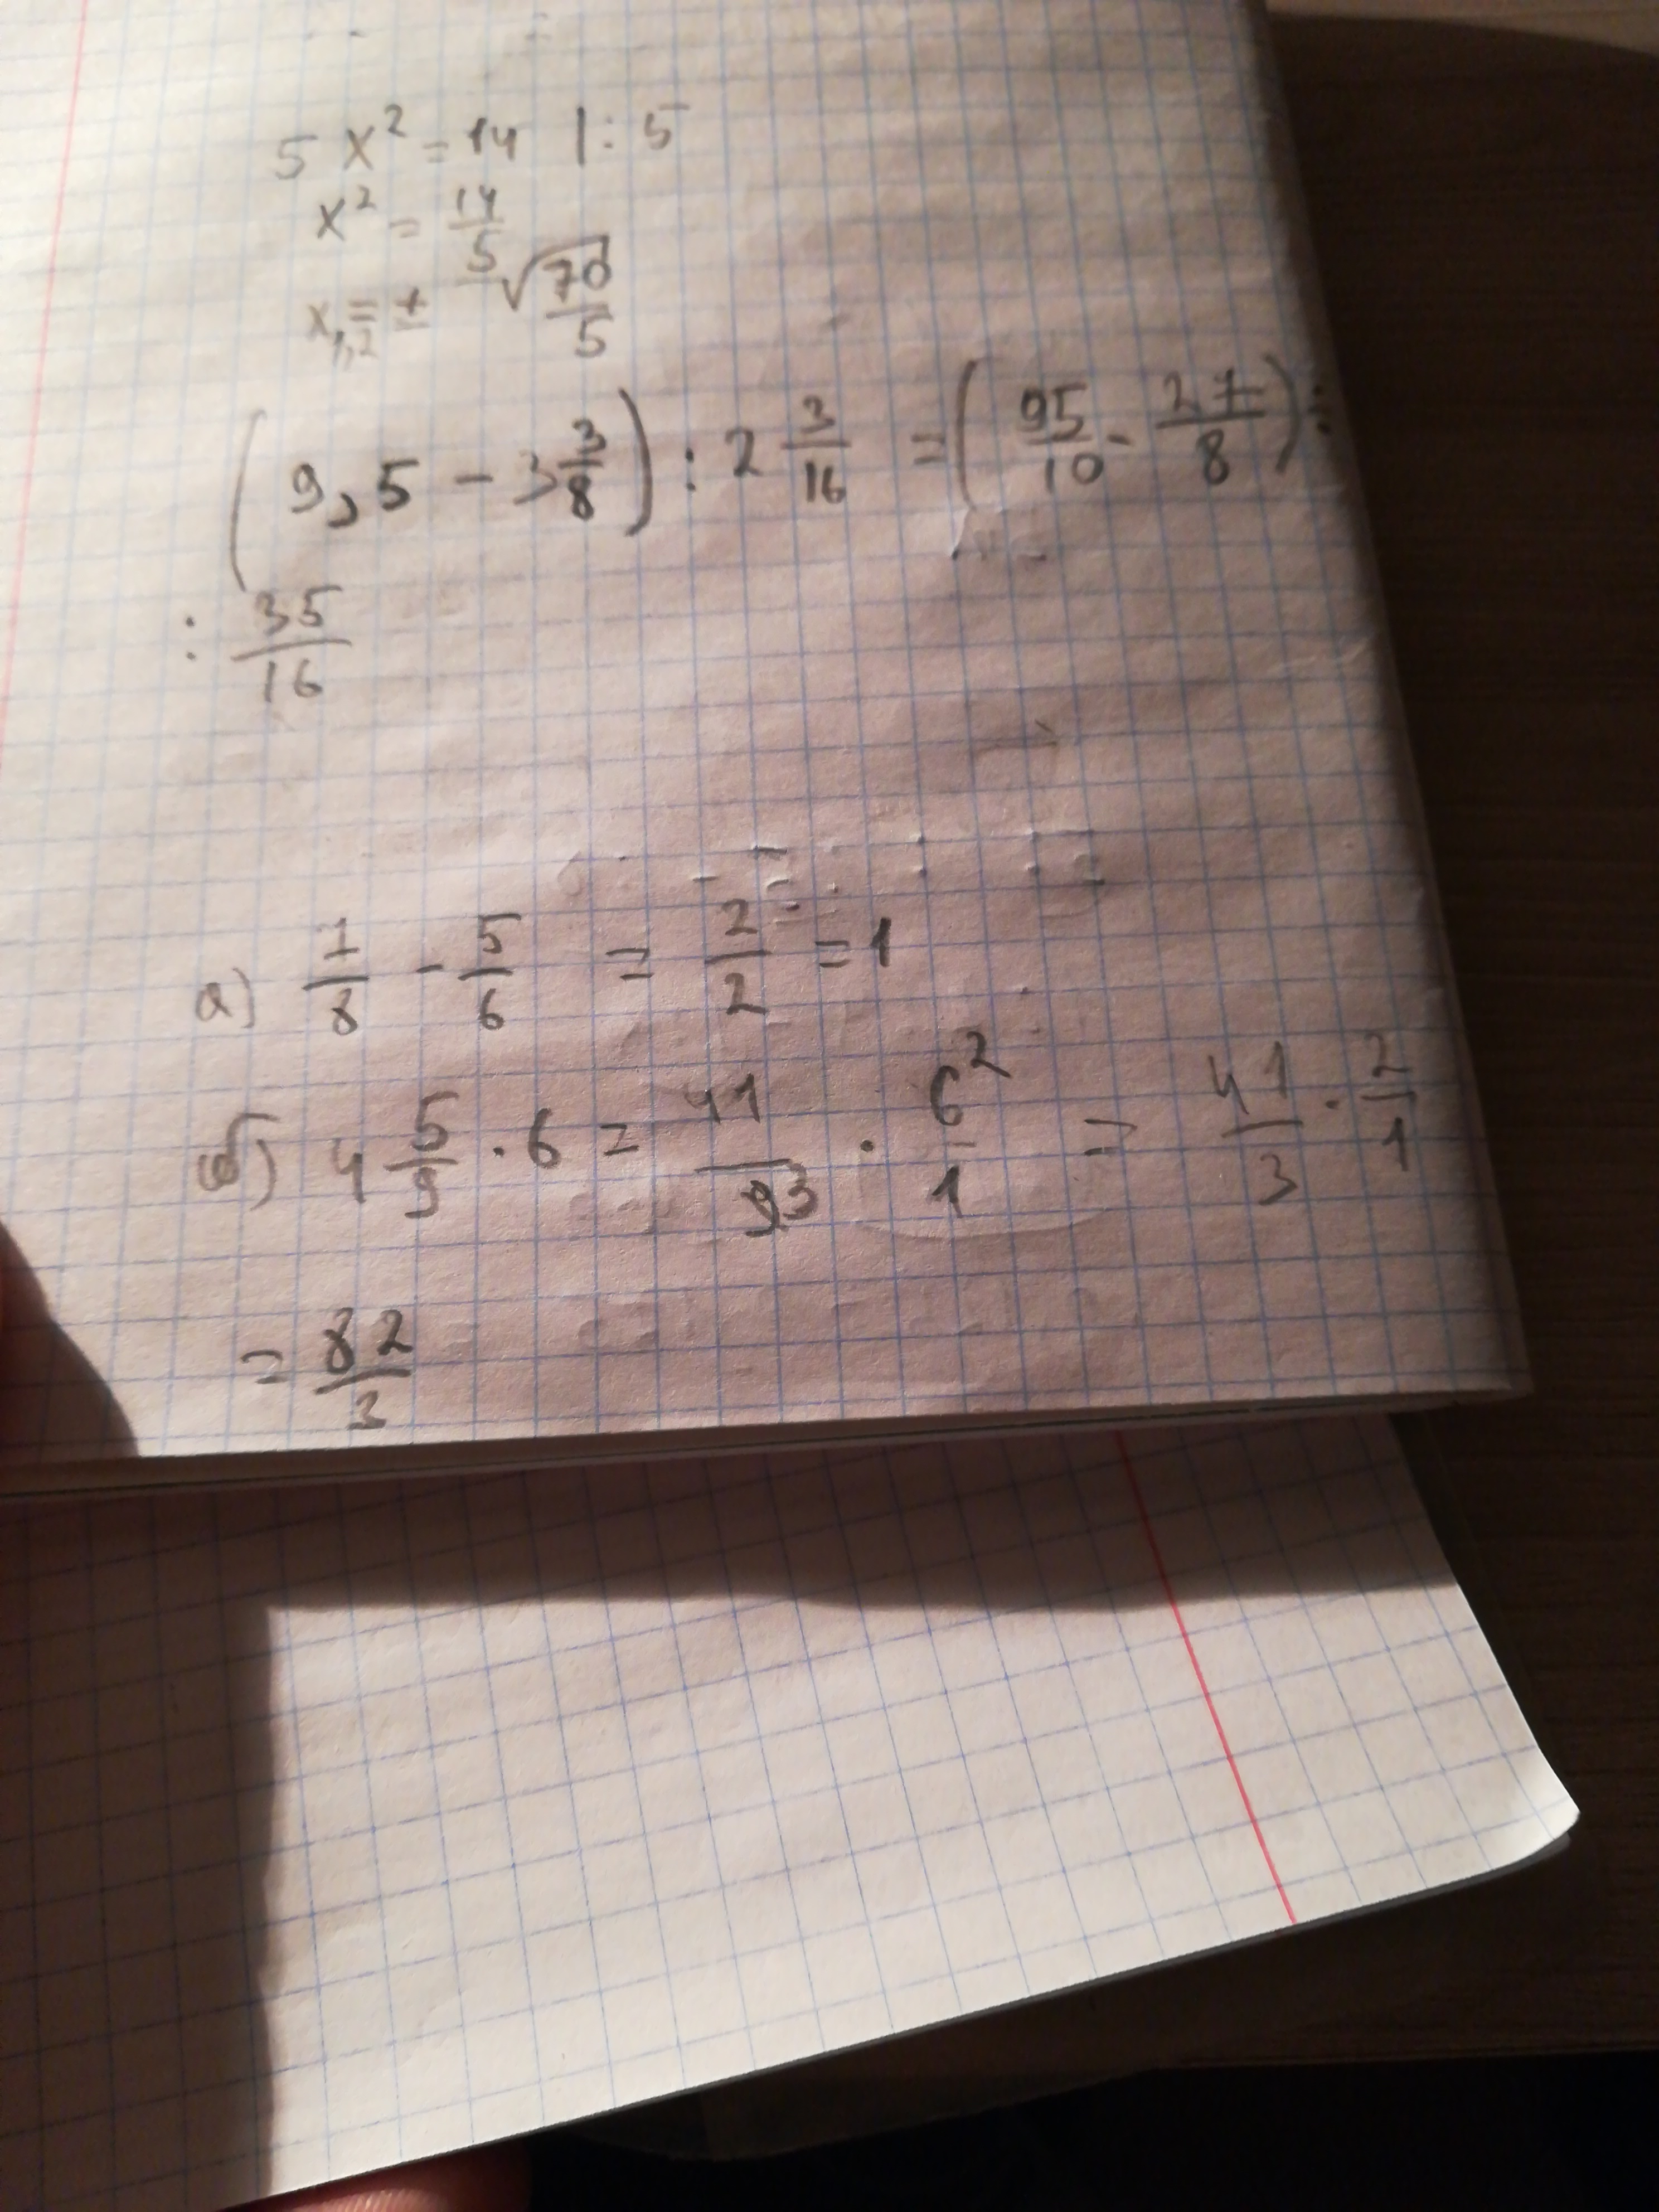 5 x² = 14 |: 5
x² = 14/5
x₁,₂ = ± √70/5
(9,5 - 3 3/8) : 2 3/16 = (95/10 - 27/8) :
: 35/16
а) 7/8 - 5/6 = 2/2 = 1
б) 4 5/9 · 6 = 41/9 3 · 6²/1 = 41/3 · 2/1
= 82/3